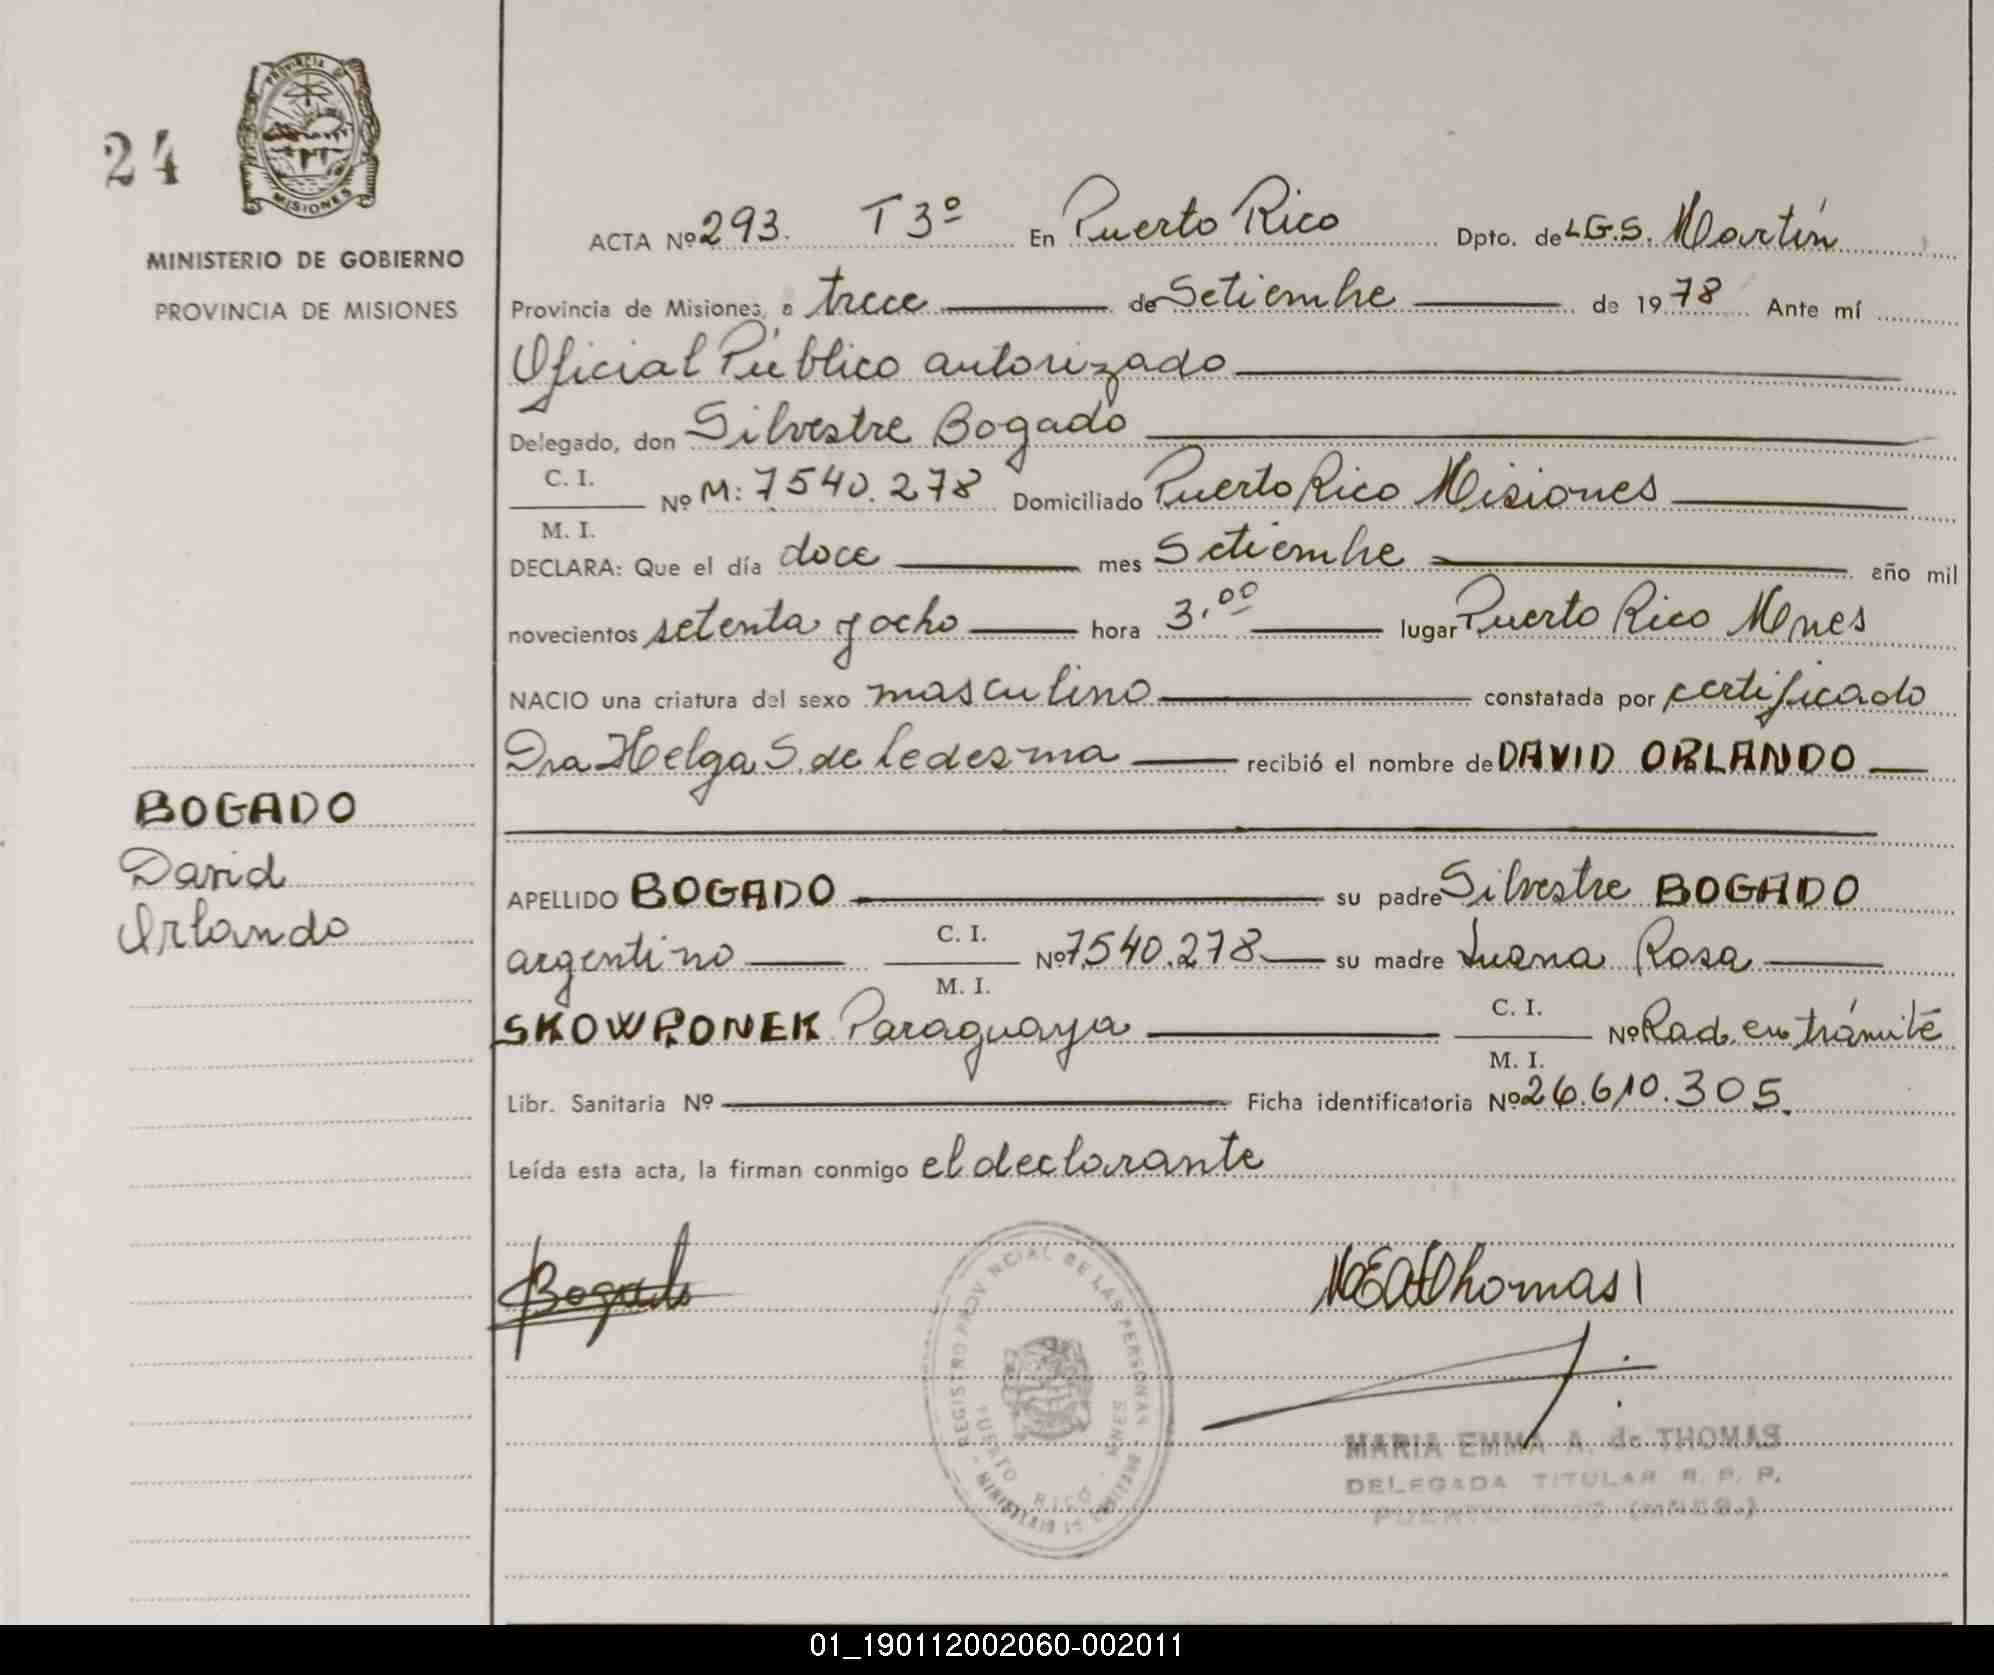 24
PROVINCIA DE
MISIONES
MINISTERIO DE GOBIERNO
PROVINCIA DE MISIONES
BOGADO
David
Orlando
ACTA Nº 293. T 3º En Puerto Rico Dpto. de L.G.S. Martín
Provincia de Misiones, a trece de Setiembre de 1978 Ante mí
Oficial Público autorizado
Delegado, don Silvestre Bogado
C. I.
Nº M: 7540.278 Domiciliado Puerto Rico Misiones
M. I.
DECLARA: Que el día doce mes Setiembre año mil
novecientos setenta y ocho hora 3,00 lugar Puerto Rico Mnes
NACIO una criatura del sexo masculino constatada por certificado
Dra Helga S. de Ledezma recibió el nombre de DAVID ORLANDO
APELLIDO BOGADO su padre Silvestre BOGADO
C. I.
argentino Nº 7.540.278 su madre Juana Rosa
M. I.
C. I.
SKOWRONEK Paraguaya Nº Rad. en trámite
M. I.
Libr. Sanitaria Nº Ficha identificatoria Nº 26.610.305.
Leída esta acta, la firman conmigo el declarante
Bogado
MEAdThomas
REGISTRO PROVINCIAL DE LAS PERSONAS
PUERTO RICO - MNES
MINISTERIO DE GOBIERNO
MARIA EMMA A. de THOMAS
DELEGADA TITULAR R. P. P.
PUERTO RICO (MNES.)
01_190112002060-002011